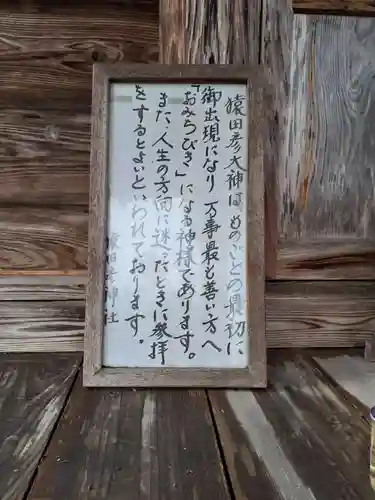 猿田彦大神は ものごとの最初に
御出現になり 万事最も善い方へ
「おみちびき」になる神様であります。
また、人生の方向に迷ったときに参拝
をするとよいといわれております。
猿田彦神社